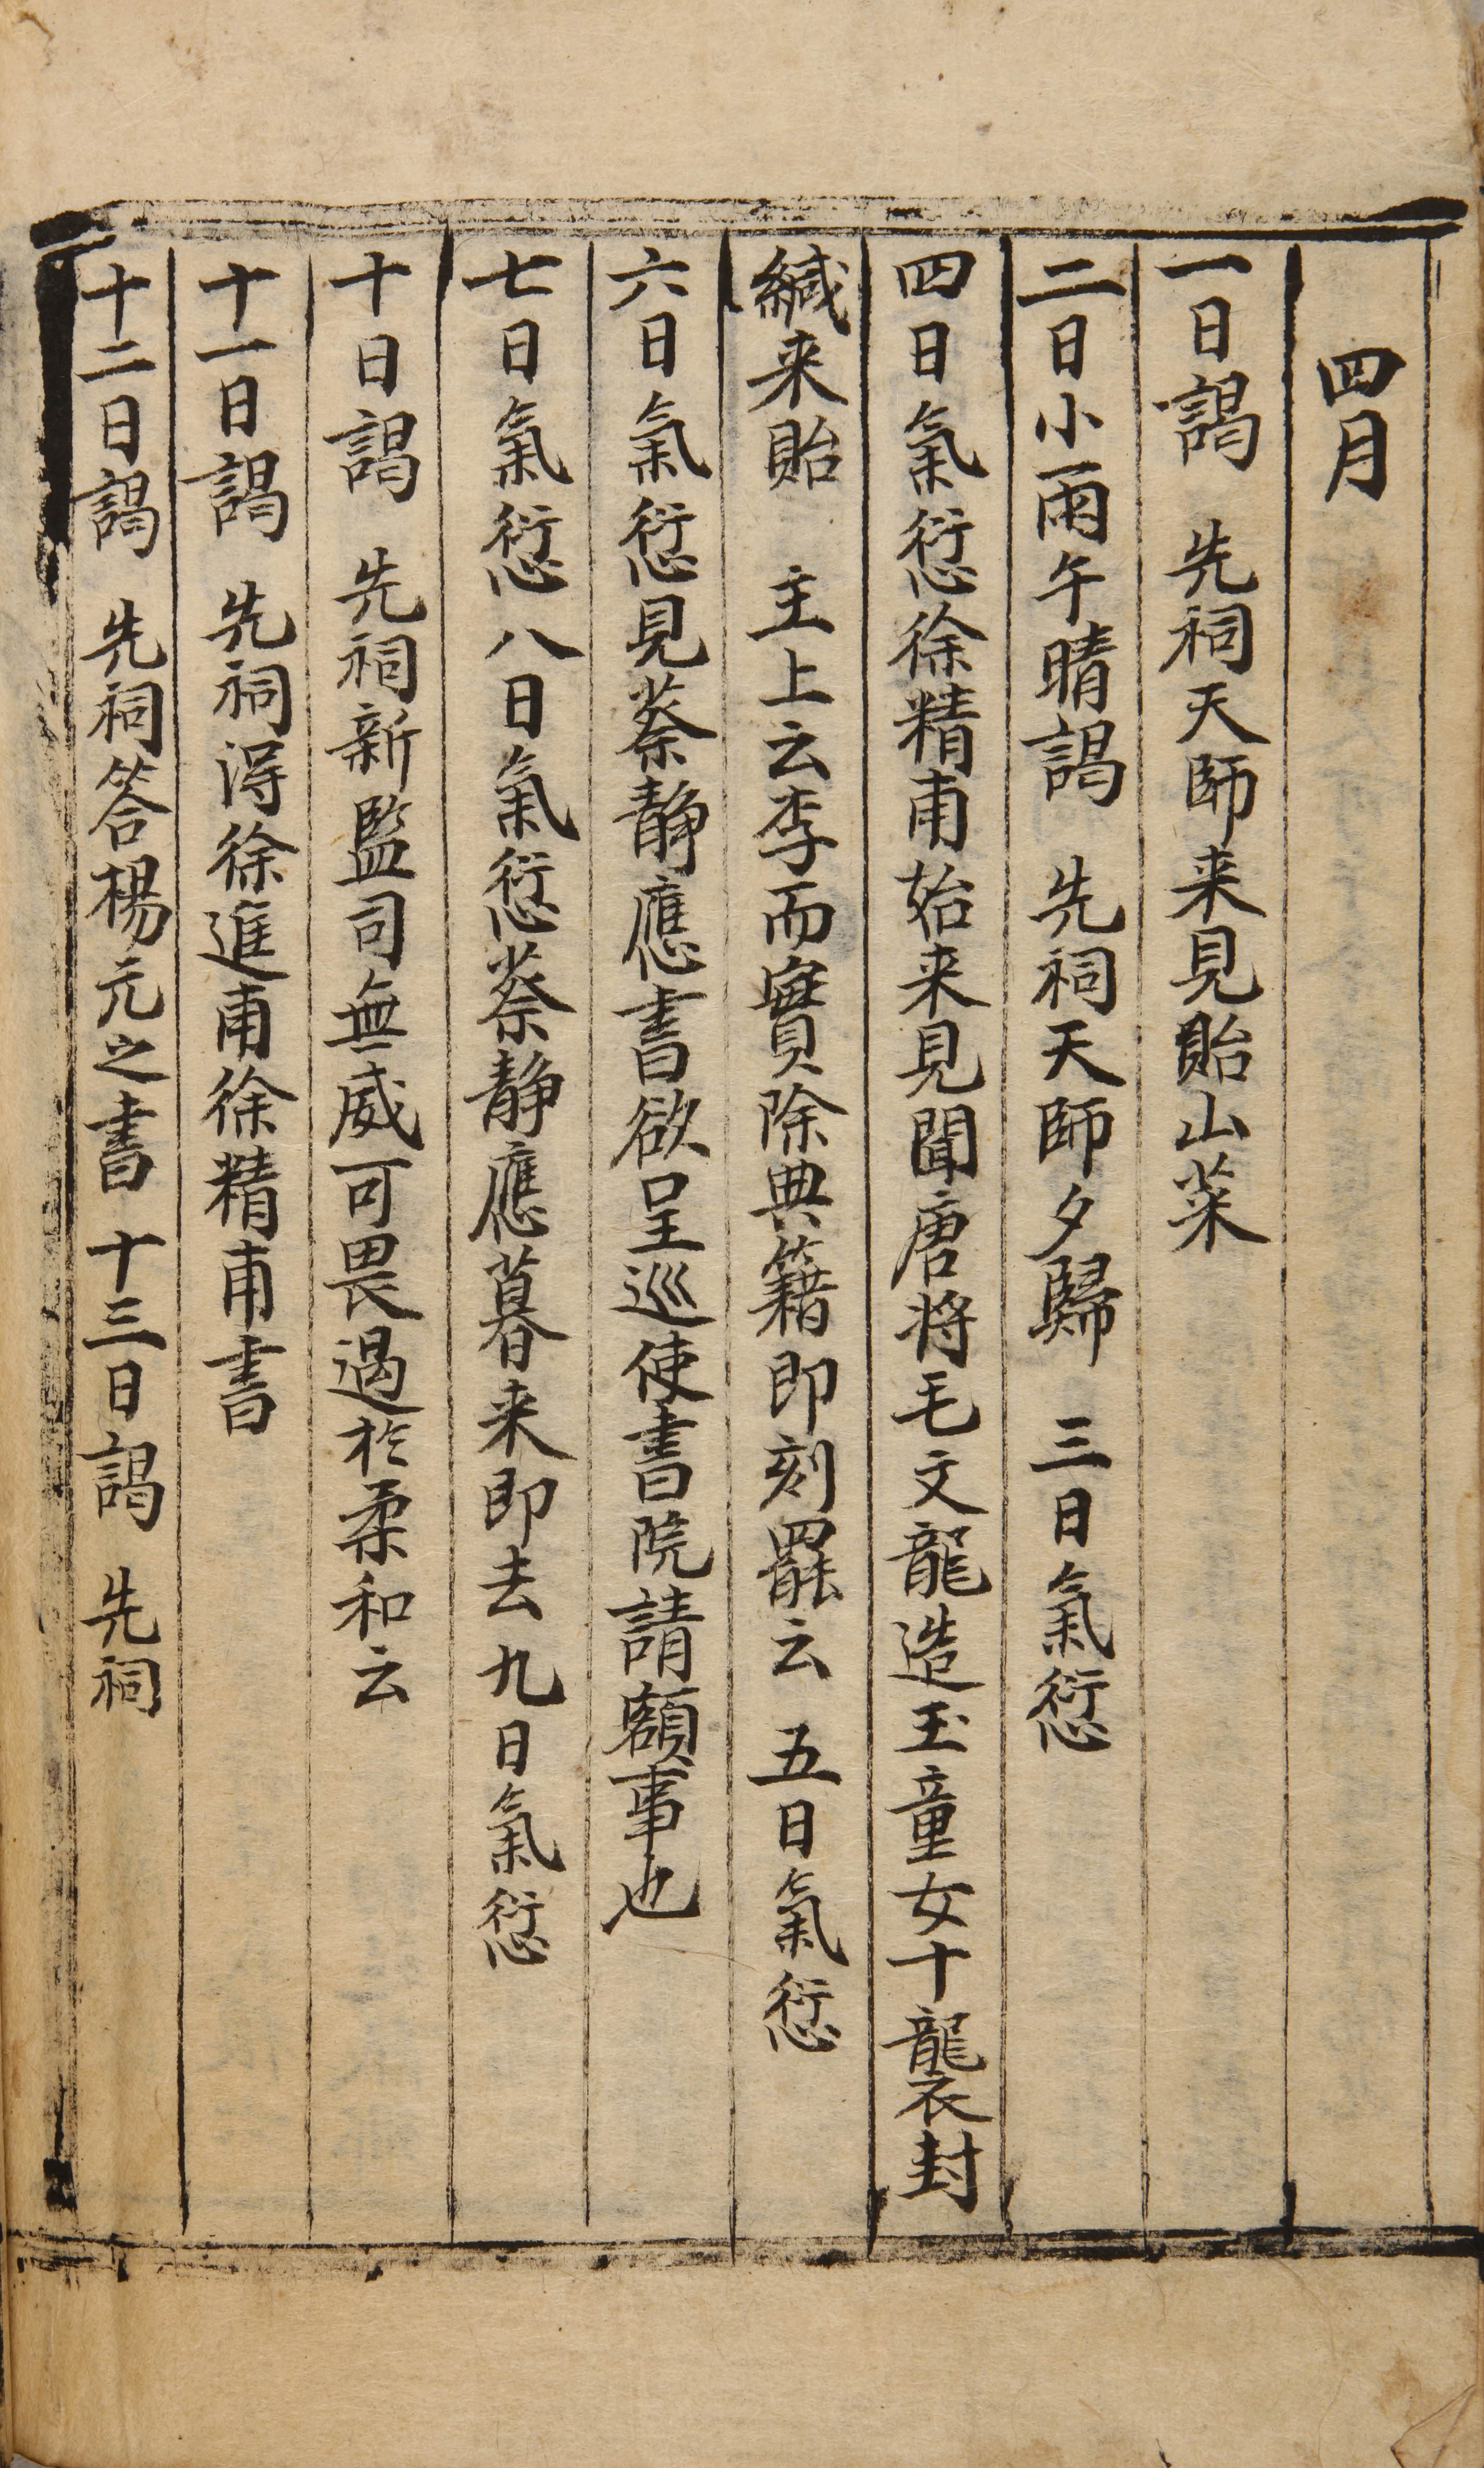 四月
一日謁　先祠天師来見貽山菜
二日小雨午晴謁　先祠天師夕歸　三日氣愆
四日氣愆徐精甫始来見聞唐将毛文龍造玉童女十襲衣封
緘来貽　主上云李而實除典籍即刻罷云　五日氣愆
六日氣愆見蔡静應書欲呈巡使書院請額事也
七日氣愆八日氣愆蔡静應暮来即去九日氣愆
十日謁　先祠新監司無威可畏過於柔和云
十一日謁　先祠淂徐進甫徐精甫書
十二日謁　先祠答楊元之書　十三日謁　先祠